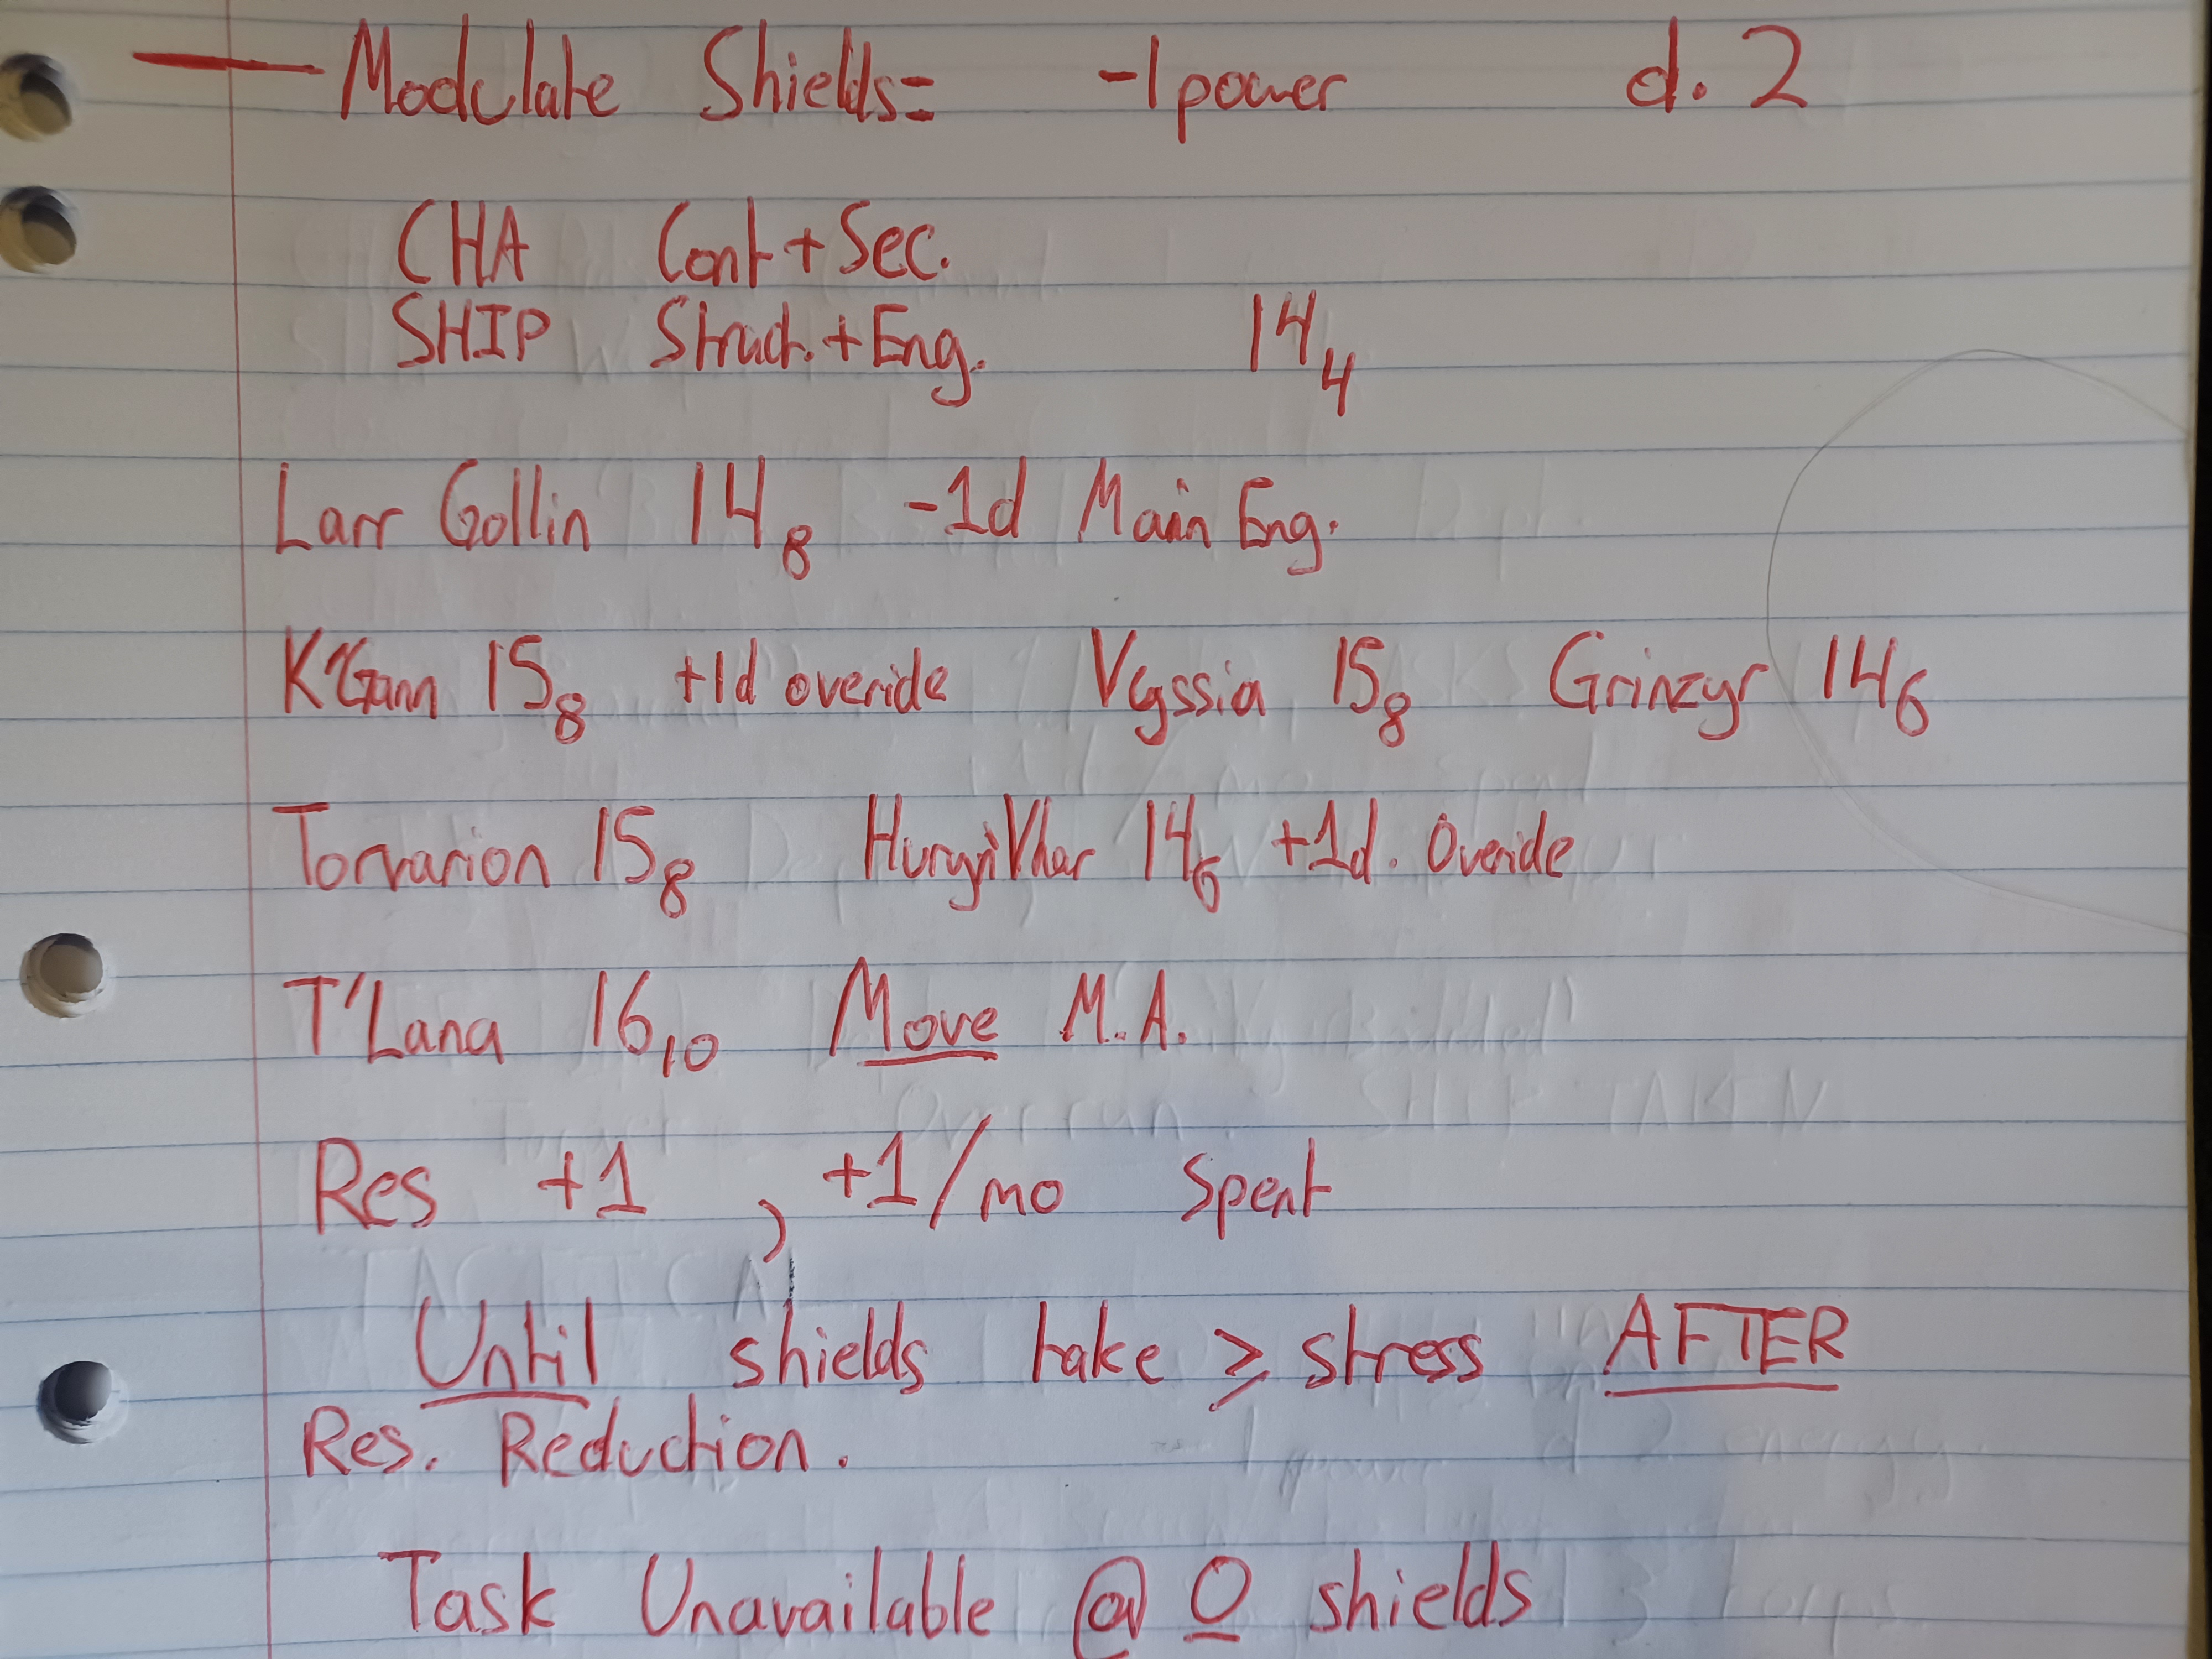 — Modulate Shields= -1 power d. 2
CHA Cont + Sec.
SHIP Struct. + Eng. 14 4
Larr Gollin 14 8 -1d Main Eng.
K'Gann 15 8 +1d overide Vyssia 15 8 Grinzyr 14 6
Torvarion 15 8 14 6 +1d. Overide
T'Lana 16 10 Move M.A.
Res +1 , +1/mo Spent
Until shields take ≥ stress AFTER
Res. Reduction.
Task Unavailable @ 0 shields